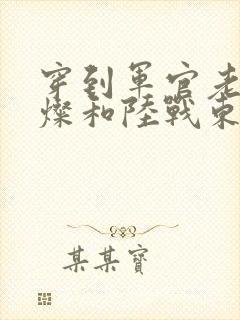 穿到軍官老
燦和陸戰東
某某寶